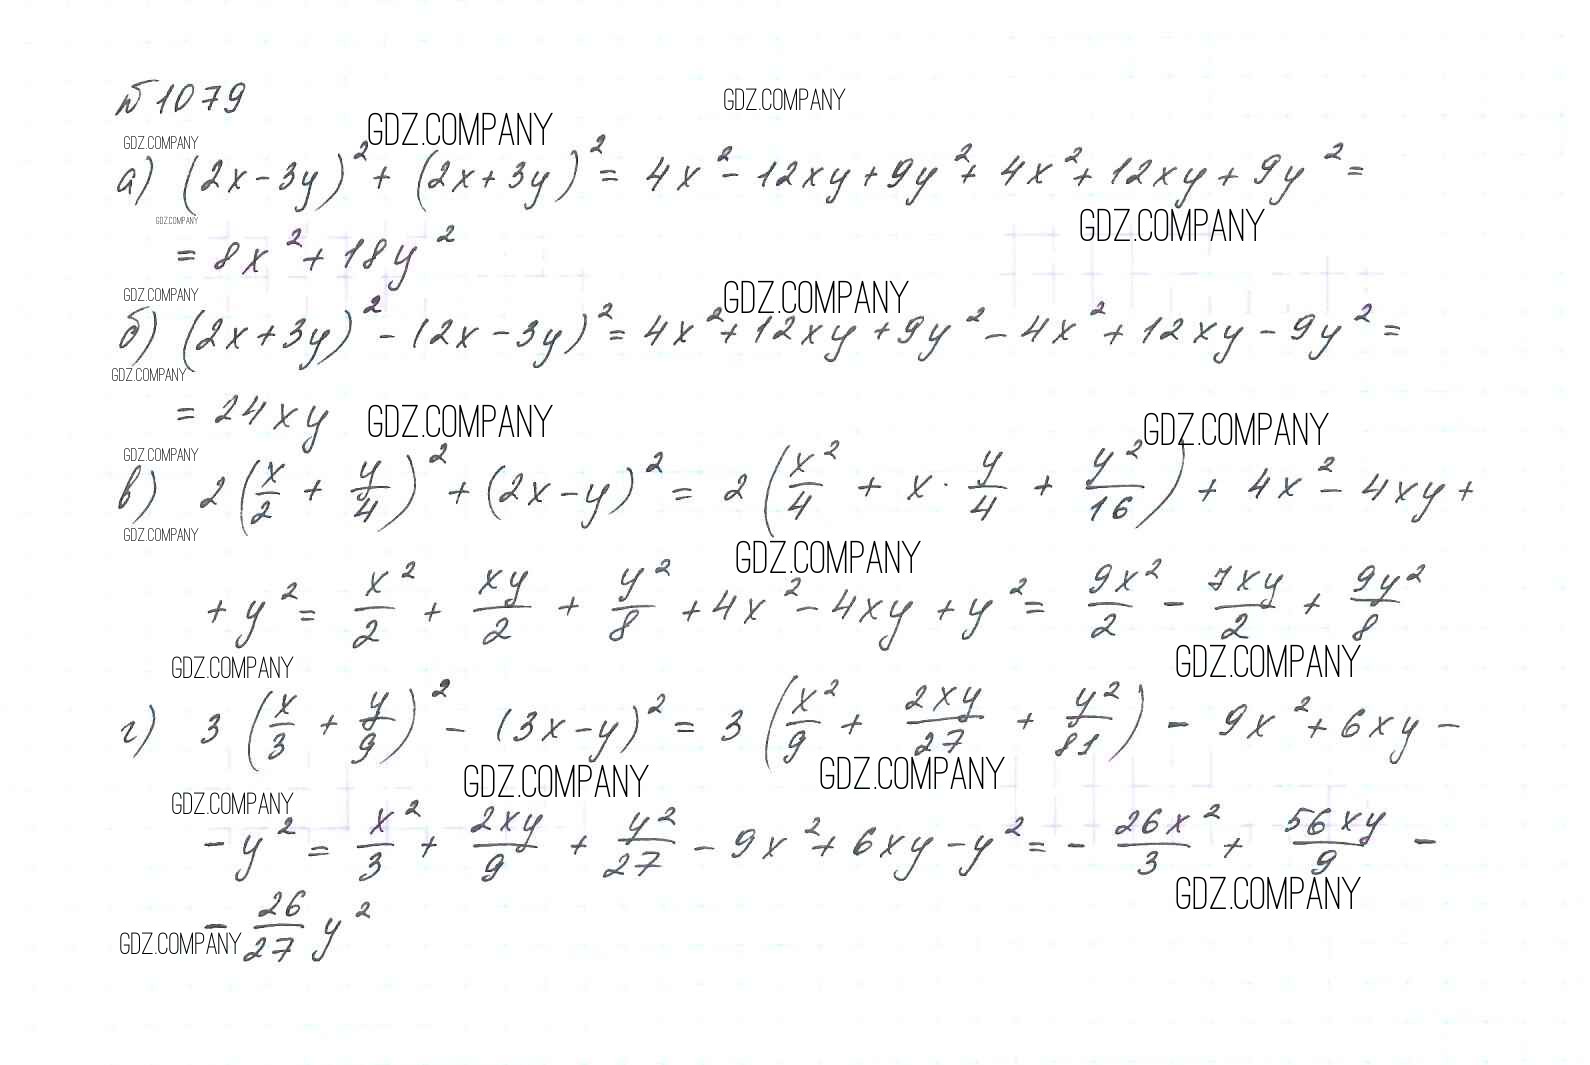 №1079
GDZ.COMPANY
GDZ.COMPANY
GDZ.COMPANY
а) (2x-3y)² + (2x+3y)² = 4x² - 12xy + 9y² + 4x² + 12xy + 9y² =
GDZ.COMPANY
GDZ.COMPANY
= 8x² + 18y²
GDZ.COMPANY
GDZ.COMPANY
б) (2x+3y)² - (2x-3y)² = 4x² + 12xy + 9y² - 4x² + 12xy - 9y² =
GDZ.COMPANY
= 24xy
GDZ.COMPANY
GDZ.COMPANY
GDZ.COMPANY
в) 2(x/2 + y/4)² + (2x-y)² = 2(x²/4 + x · y/4 + y²/16) + 4x² - 4xy +
GDZ.COMPANY
GDZ.COMPANY
+ y² = x²/2 + xy/2 + y²/8 + 4x² - 4xy + y² = 9x²/2 - 7xy/2 + 9y²/8
GDZ.COMPANY
GDZ.COMPANY
г) 3(x/3 + y/9)² - (3x-y)² = 3(x²/9 + 2xy/27 + y²/81) - 9x² + 6xy -
GDZ.COMPANY
GDZ.COMPANY
GDZ.COMPANY
- y² = x²/3 + 2xy/9 + y²/27 - 9x² + 6xy - y² = - 26x²/3 + 56xy/9 -
GDZ.COMPANY
- 26/27 y²
GDZ.COMPANY